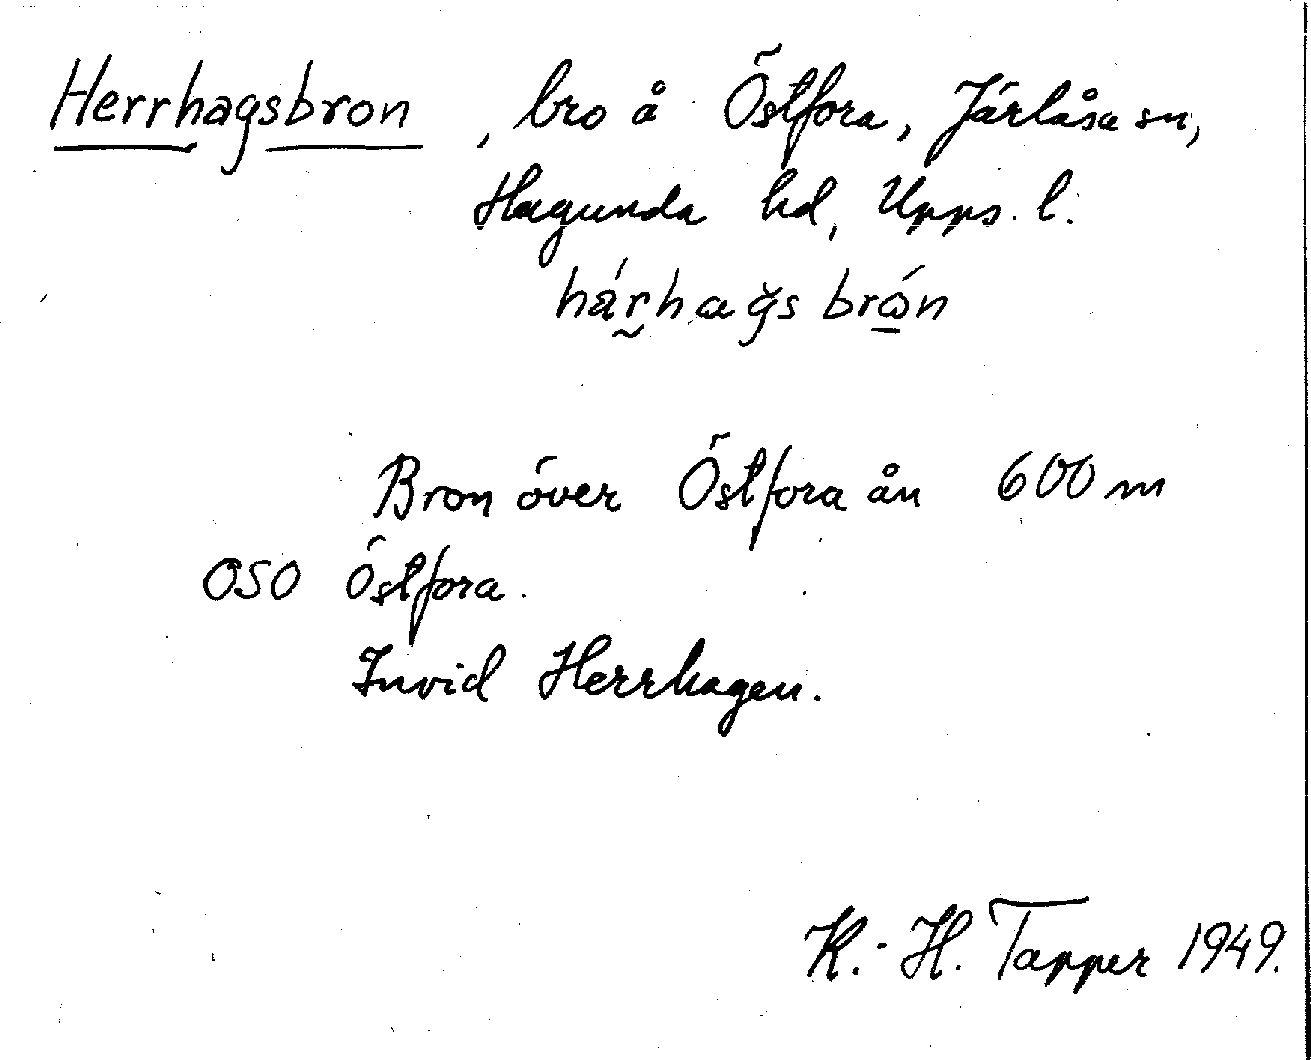 Herrhagsbron, bro å Östfora, Järlåsa sn,
Hagunda hd, Upps. l.
hárhağs brǻn
Bron över Östforaån 600 m
OSO Östfora.
Invid Herrhagen.
K.-H. Tapper 1949.